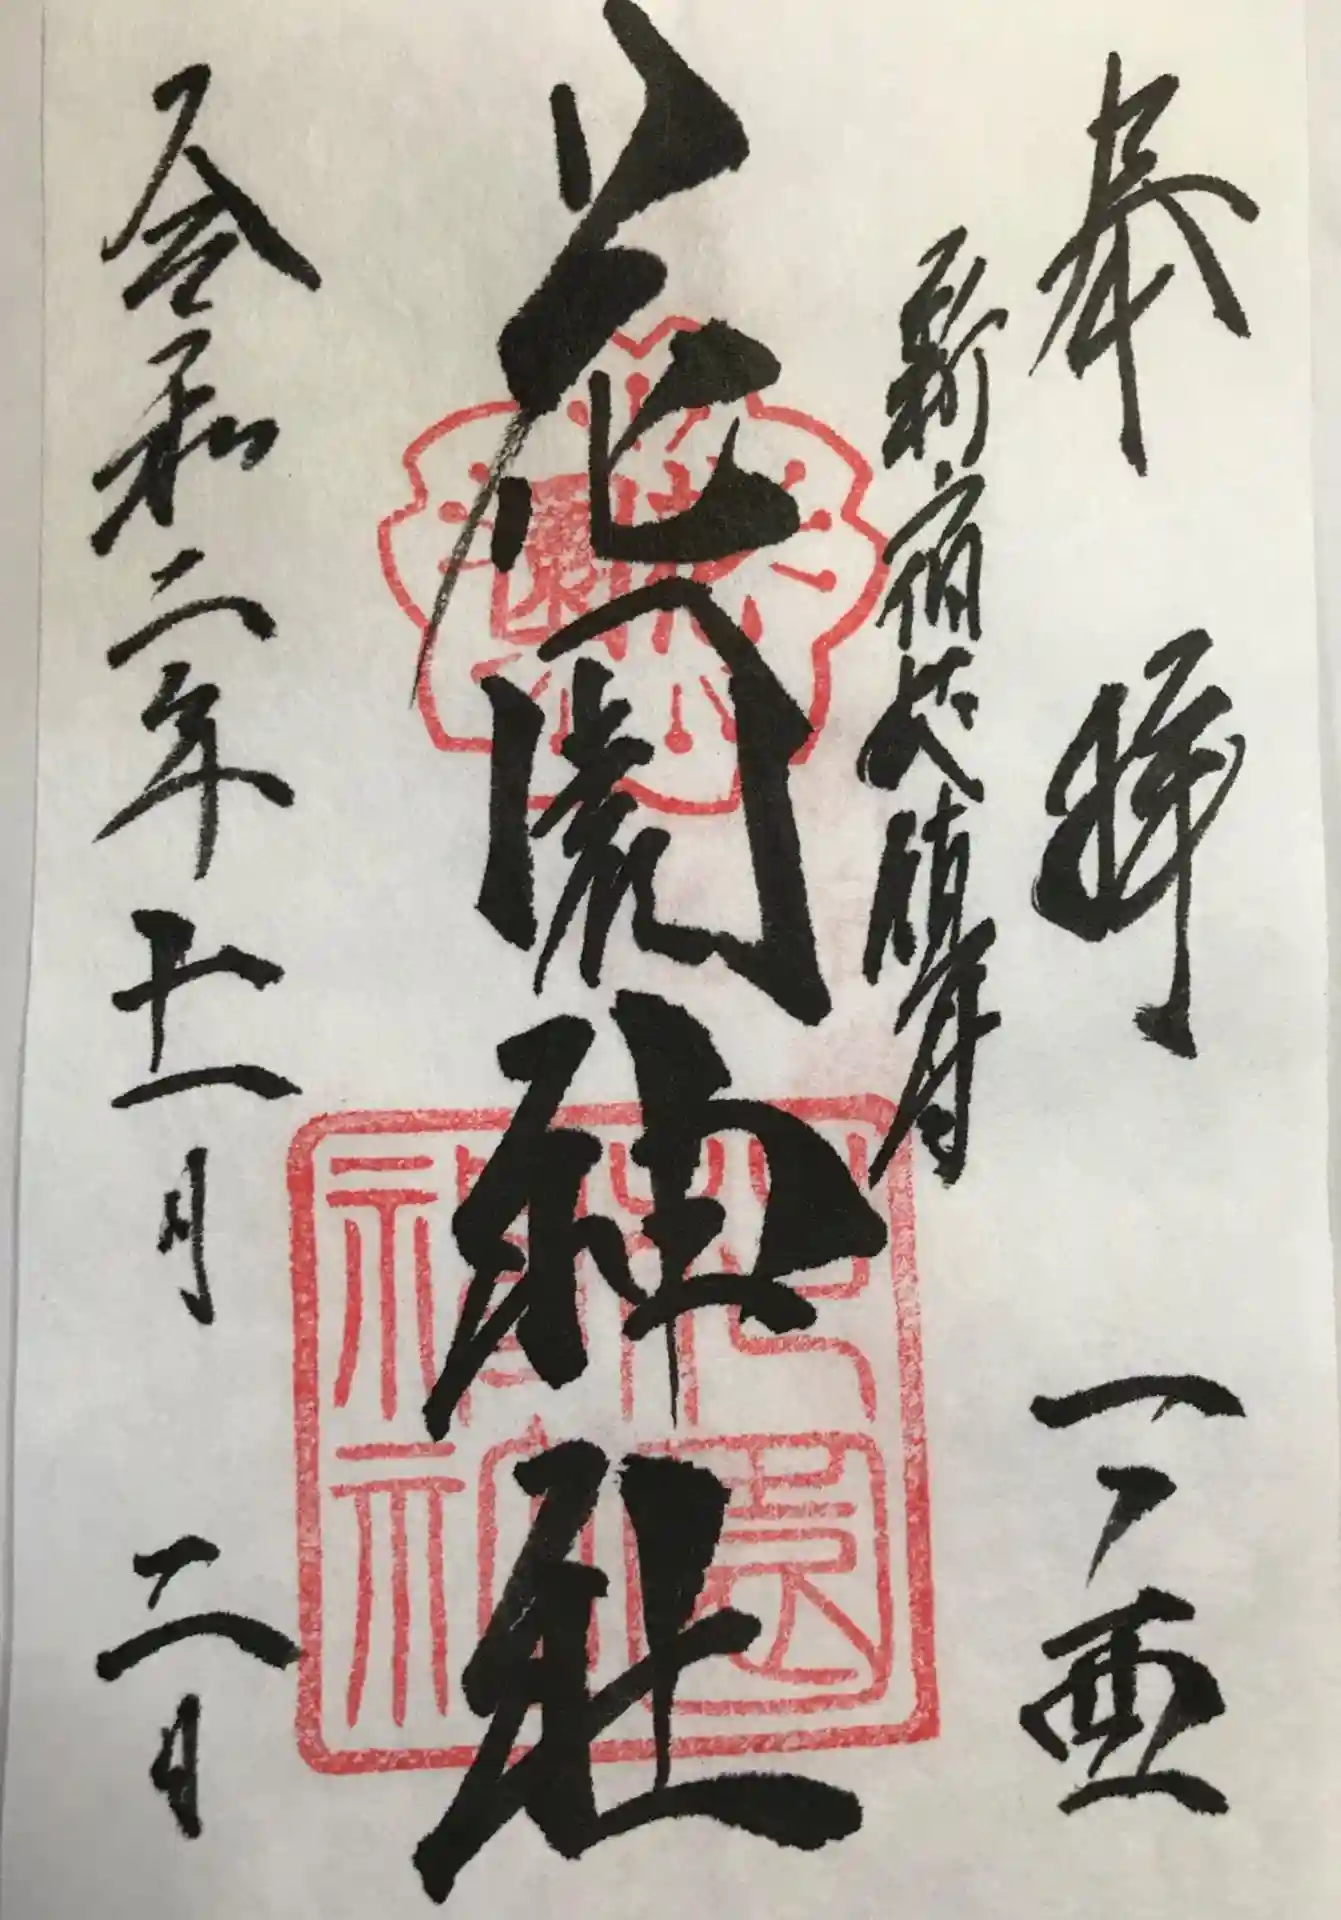 奉拝 一ノ酉
新宿总鎮守
花園神社
花園
花園神社
令和二年十一月二日